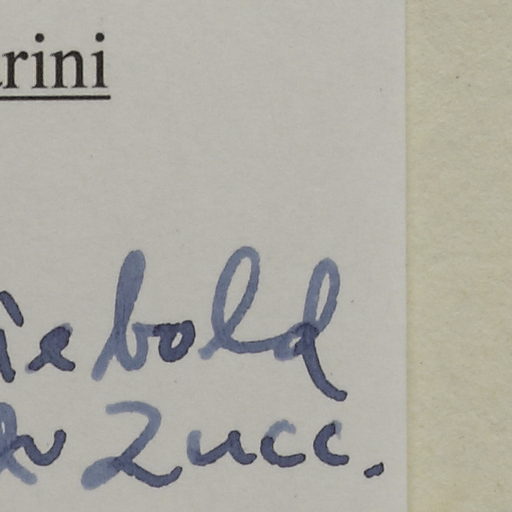 rini
iebold
& Zucc.